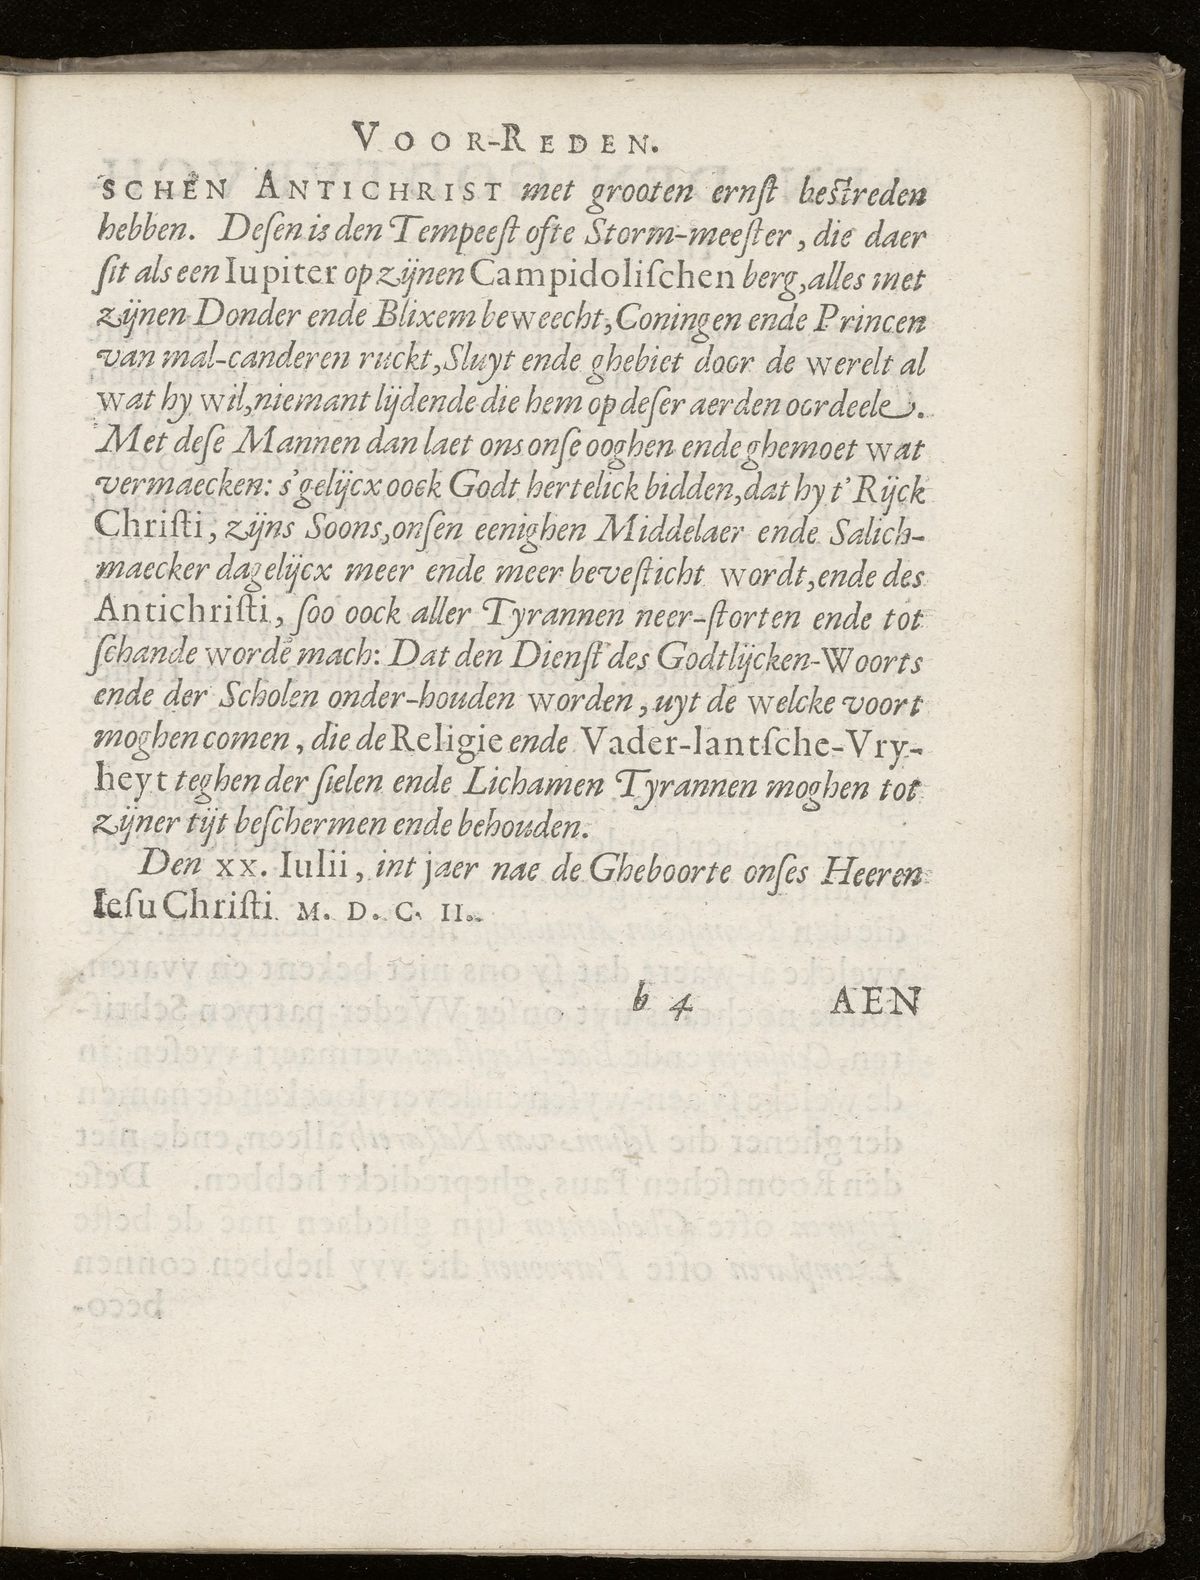 VOOR-REDEN.
SCHEN ANTICHRIST met grooten ernſt beſtreden
hebben. Deſen is den Tempeeſt ofte Storm-meeſter, die daer
ſit als een Iupiter op zijnen Campidoliſchen berg, alles met
zijnen Donder ende Blixem beweecht, Coningen ende Princen
van mal-canderen ruckt, Sluyt ende ghebiet door de werelt al
wat hy wil, niemant lijdende die hem op deſer aerden oordeele.
Met deſe Mannen dan laet ons onſe ooghen ende ghemoet wat
vermaecken: s'gelijcx oock Godt hertelick bidden, dat hy t'Rijck
Chriſti, zijns Soons, onſen eenighen Middelaer ende Salich-
maecker dagelijcx meer ende meer beveſticht wordt, ende des
Antichriſti, ſoo oock aller Tyrannen neer-ſtorten ende tot
ſchande wordē mach: Dat den Dienſt des Godtlijcken-Woorts
ende der Scholen onder-houden worden, uyt de welcke voort
moghen comen, die de Religie ende Vader-lantſche-Vry-
heyt teghen der ſielen ende Lichamen Tyrannen moghen tot
zijner tijt beſchermen ende behouden.
Den XX. Iulii, int jaer nae de Gheboorte onſes Heeren
Ieſu Chriſti M. D. C. II.
b 4 AEN